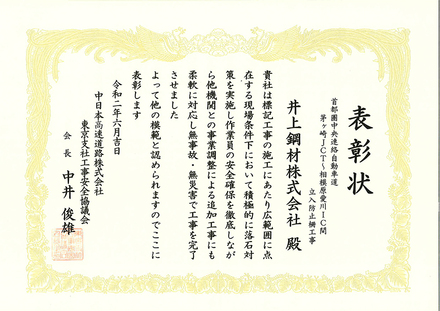 表彰状
首都圏中央連絡自動車道
茅ヶ崎JCT～相模原愛川IC間
立入防止柵工事
井上鋼材株式会社 殿
貴社は標記工事の施工にあたり広範囲に点
在する現場条件下において積極的に落石対
策を実施し作業員の安全確保を徹底しなが
ら他機関との事業調整による追加工事にも
柔軟に対応し無事故・無災害で工事を完了
させました
よって他の模範と認められますのでここに
表彰します
令和二年六月吉日
中日本高速道路株式会社
東京支社工事安全協議会
会長 中井俊雄